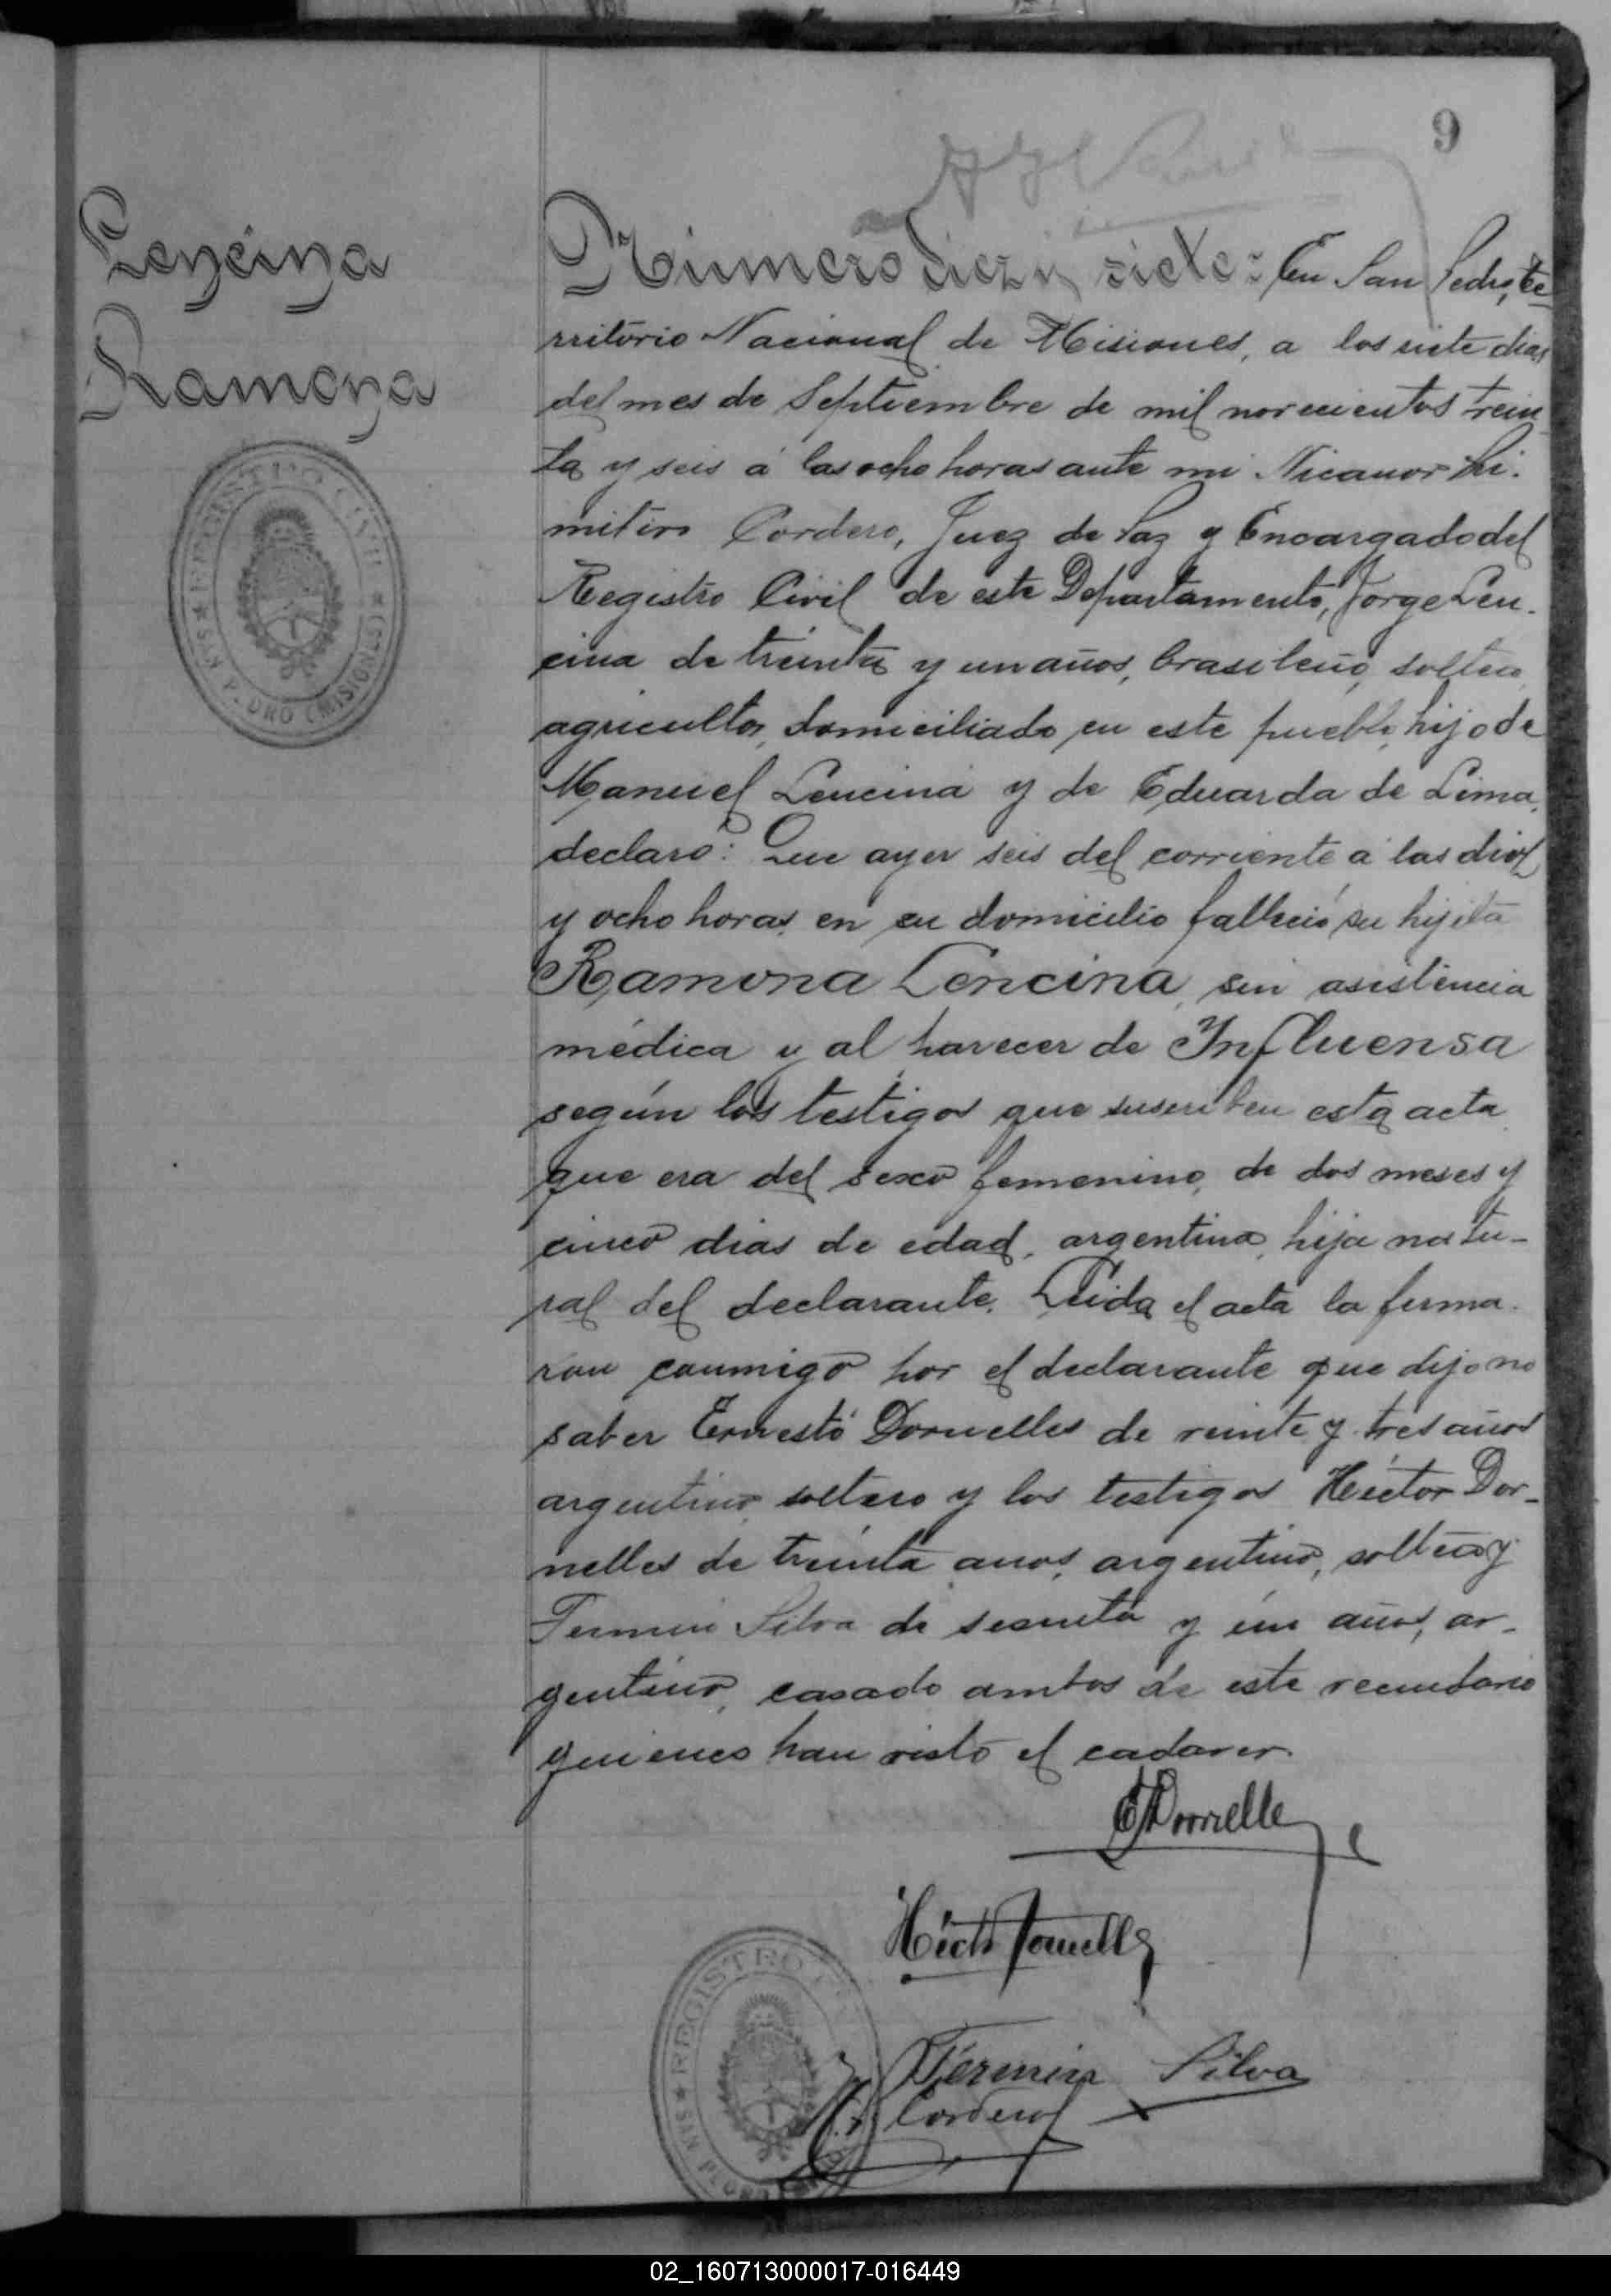 9
Lencina
Ramona
REGISTRO CIVIL
SAN PEDRO (MISIONES)
Número diez y siete: En San Pedro, te
rritorio Nacional de Misiones, a los siete dias
del mes de Septiembre de mil novecientos trein
ta y seis á las ocho horas ante mi Nicanor
Cordero, Juez de Paz y Encargado del
Registro Civil de este Departamento, Jorge Len-
cina de treinta y un años, brasileño, soltero
agricultor, domiciliado en este pueblo, hijo de
Manuel Lencina y de Eduarda de Lima,
declaro: Que ayer seis del corriente á las diez
y ocho horas en su domicilio falleció su hijita
Ramona Lencina, sin asistencia
médica y al parecer de Influensa
según los testigos que suscriben esta acta
que era del sexo femenino, de dos meses y
cinco dias de edad, argentina, hija natu-
ral del declarante. Leida el acta la firma-
ron conmigo por el declarante que dijo no
saber Ernesto Dornelles de veinte y tres años
argentino, soltero y los testigos Héctor Dor-
nelles de treinta años, argentino, soltero y
Fermin Silva de sesenta y un años, ar-
gentino, casado ambos de este vecindario
quienes han visto el cadaver.
E Dornelles
Héctor Dornelles
Fermin Silva
Cordero
REGISTRO
SAN PEDRO
02_160713000017-016449